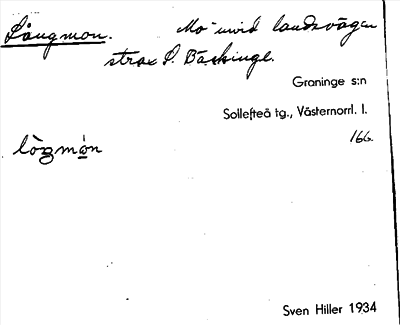 Långmon. Mo invid landsvägen
strax S. Bäckinge.
Graninge s:n
Sollefteå tg., Västernorrl. l.
166.
lògmón
Sven Hiller 1934